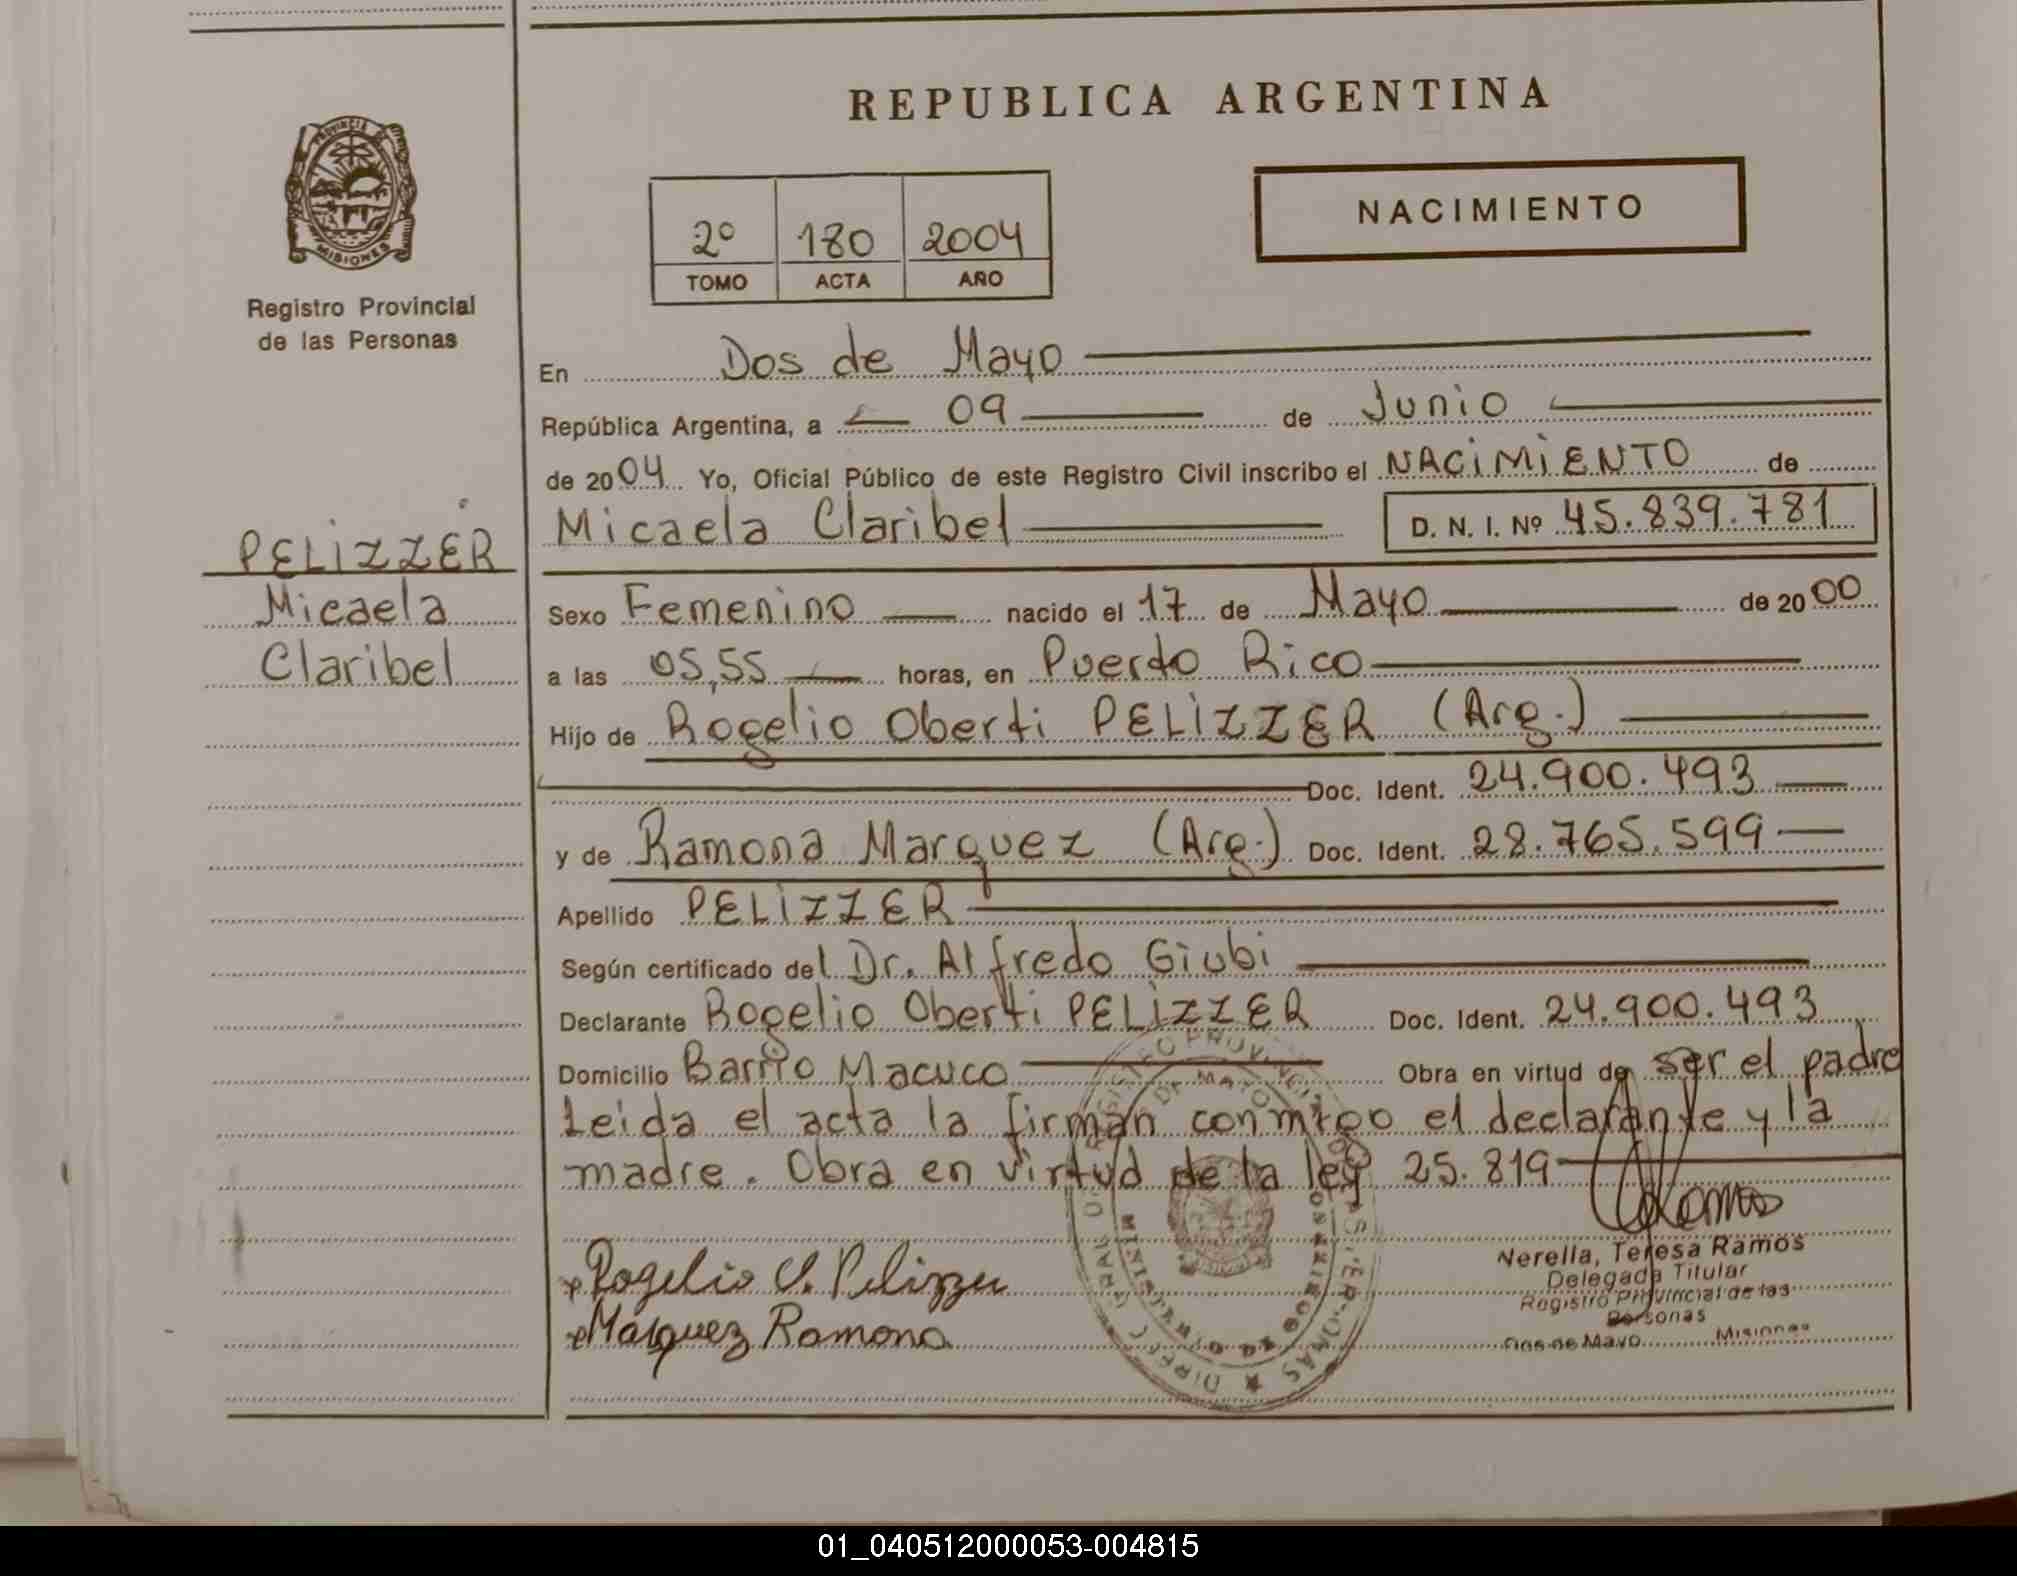 REPUBLICA ARGENTINA
PROVINCIA DE
MISIONES
Registro Provincial
de las Personas
2º 180 2004
TOMO ACTA AÑO
NACIMIENTO
En Dos de Mayo
República Argentina, a 09 de Junio
de 2004 Yo, Oficial Público de este Registro Civil inscribo el NACIMIENTO de
PELIZZER
Micaela
Claribel
Micaela Claribel D. N. I. Nº 45.839.781
Sexo Femenino nacido el 17 de Mayo de 2000
a las 05,55 horas, en Puerto Rico
Hijo de Rogelio Oberti PELIZZER (Arg.)
Doc. Ident. 24.900.493
y de Ramona Marquez (Arg.) Doc. Ident. 28.765.599
Apellido PELIZZER
Según certificado del Dr. Alfredo Giubi
Declarante Rogelio Oberti PELIZZER Doc. Ident. 24.900.493
Domicilio Barrio Macuco Obra en virtud de ser el padre
Leida el acta la firman conmigo el declarante y la
madre. Obra en virtud de la ley 25.819
Rogelio O. Pelizzer
Marquez Ramona
Nerella, Teresa Ramos
Delegada Titular
Registro Provincial de las
Personas
Dos de Mayo Misiones
01_040512000053-004815